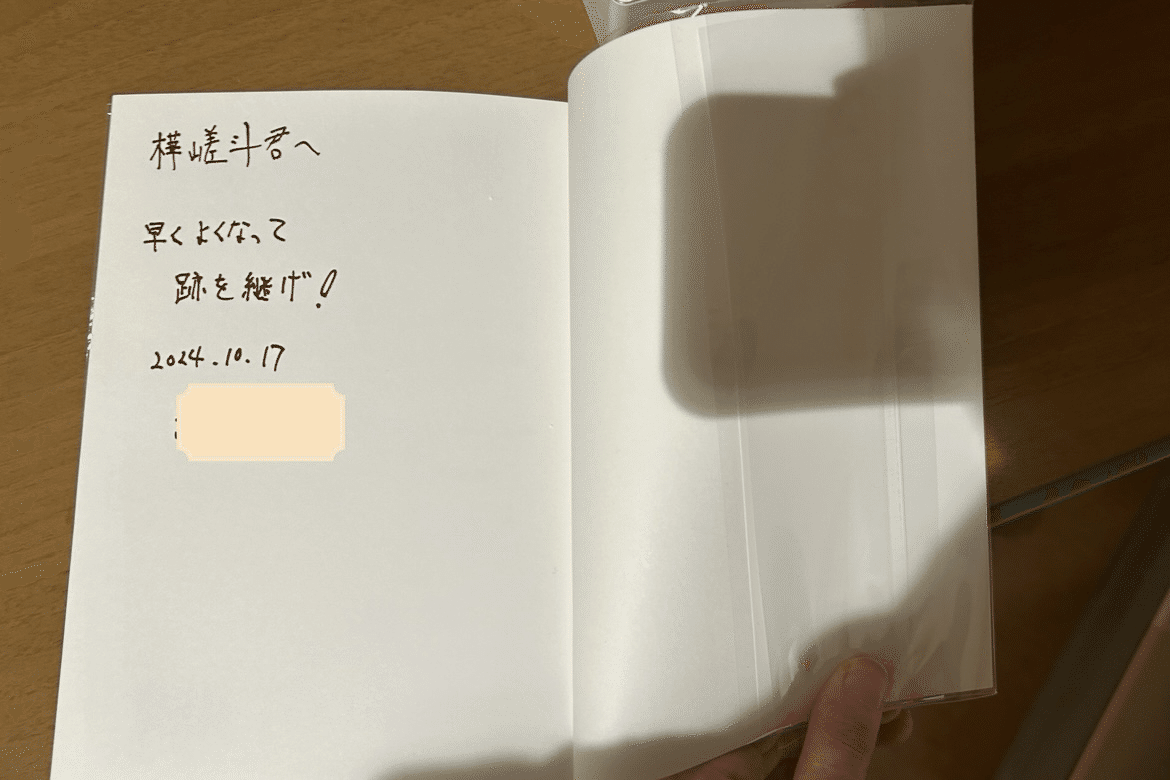 樺嵯斗君へ
早くよくなって
跡を継げ!
2024.10.17